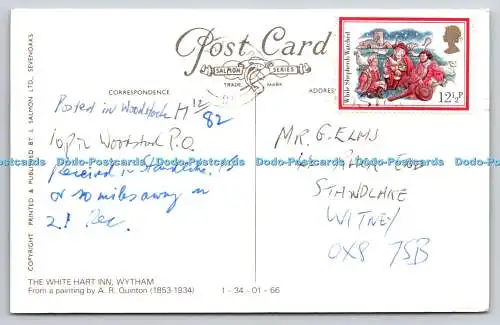 Post Card
SALMON SERIES
TRADE MARK
CORRESPONDENCE
ADDRES
While Shepherds Watched
12½P
Posted in Woodstock
12
82
1op in Woodstock P.O.
received in Standlake
or so miles away on
21 Dec.
MR. G. ELMS
PARK END
STANDLAKE
WITNEY
OX8 7SB
Dodo-Postcards Dodo-Postcards Dodo-Postcards Dodo-Postcards Dodo-Postcards
COPYRIGHT PRINTED & PUBLISHED BY J. SALMON LTD., SEVENOAKS
THE WHITE HART INN, WYTHAM
From a painting by A. R. Quinton (1853-1934)
1 - 34 - 01 - 66